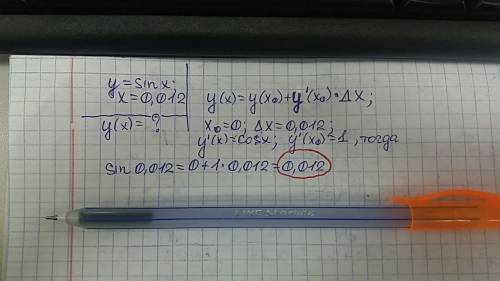 y = sin x;
x = 0,012
y(x) = ?
y(x) = y(x₀) + y'(x₀) · ΔX;
x₀ = 0; ΔX = 0,012;
y'(x) = cos x; y'(x₀) = 1, тогда
sin 0,012 = 0 + 1 · 0,012 = 0,012